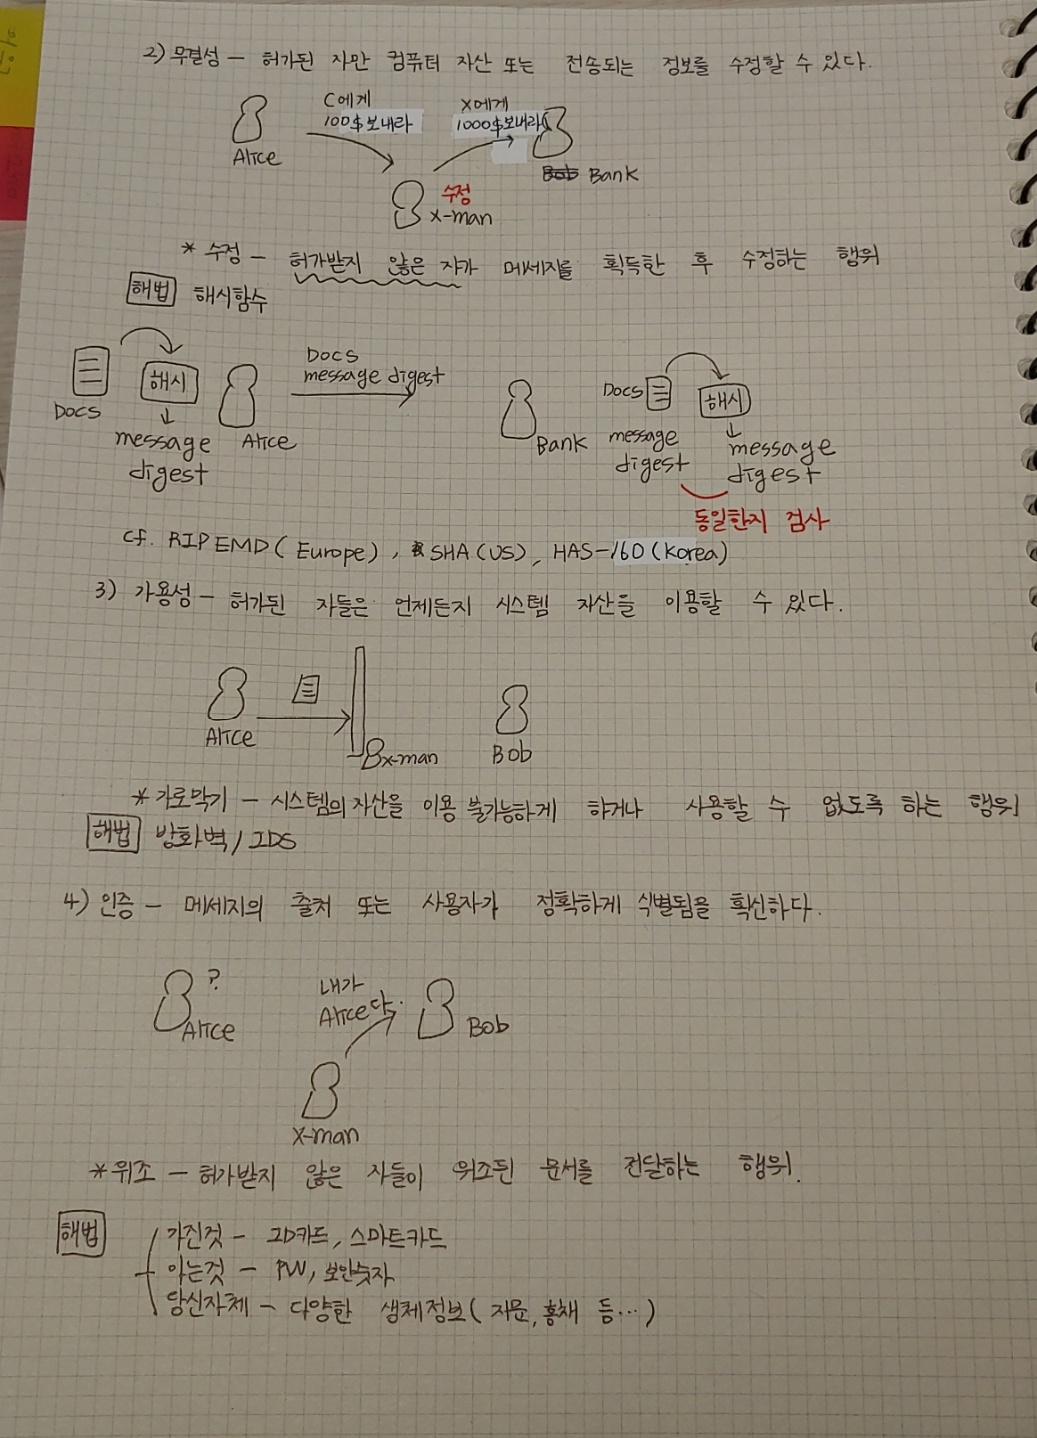 2) 무결성 - 허가된 자만 컴퓨터 자산 또는 전송되는 정보를 수정할 수 있다.
C에게
100$보내라
X에게
1000$보내라
Alice
Bob Bank
수정
X-man
* 수정 - 허가받지 않은 자가 메세지를 획득한 후 수정하는 행위
해법 해시함수
Docs
해시
message
digest
Alice
Docs
message digest
Bank
Docs
message
digest
해시
message
digest
동일한지 검사
cf. RIPEMD(Europe), SHA(US), HAS-160(Korea)
3) 가용성 - 허가된 자들은 언제든지 시스템 자산을 이용할 수 있다.
Alice
X-man
Bob
* 가로막기 - 시스템의 자산을 이용 불가능하게 하거나 사용할 수 없도록 하는 행위
해법 방화벽/IDS
4) 인증 - 메세지의 출처 또는 사용자가 정확하게 식별됨을 확신하다.
?
Alice
내가
Alice다.
Bob
X-man
* 위조 - 허가받지 않은 자들이 위조된 문서를 전달하는 행위.
해법
가진것 - ID카드, 스마트카드
아는것 - PW, 보안숫자
당신자체 - 다양한 생체정보(지문, 홍채 등...)